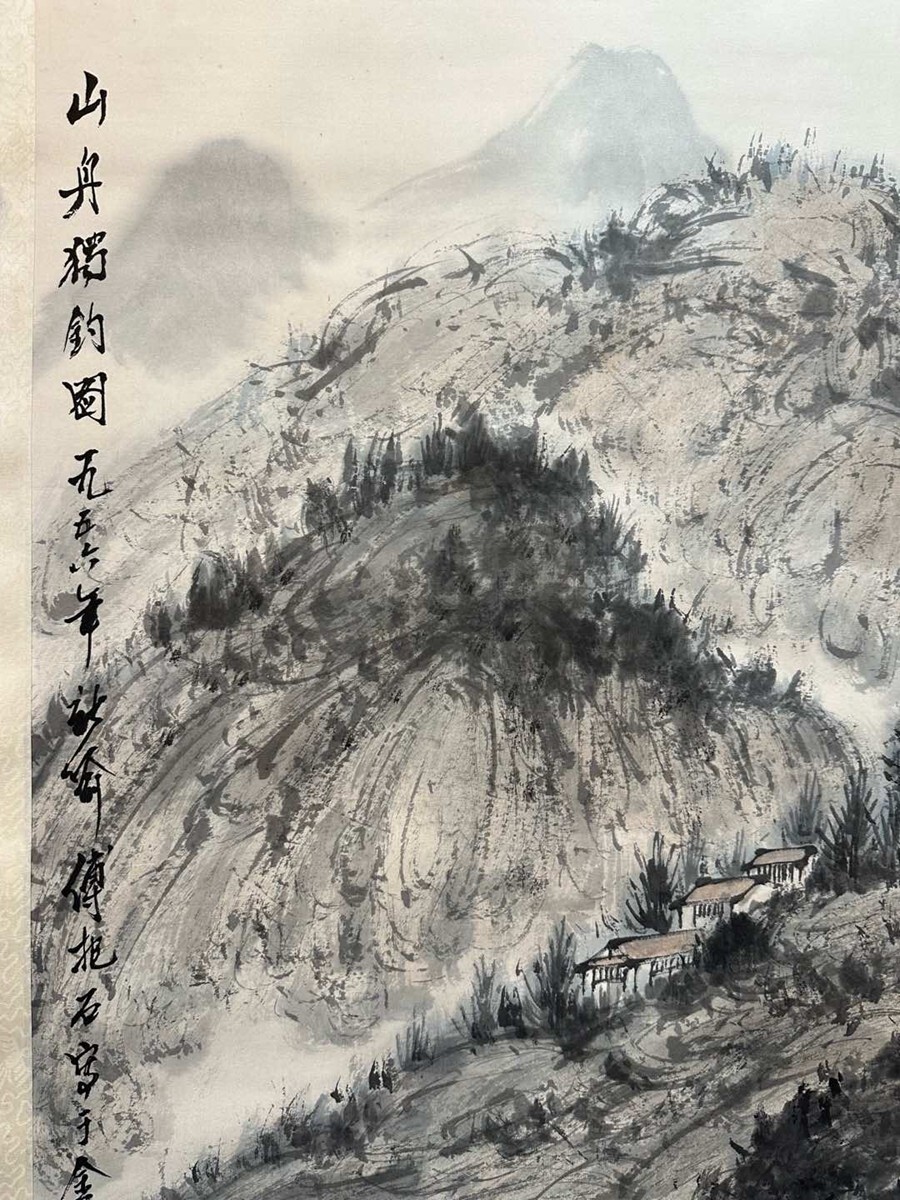 山舟獨釣圖 九五六年 秋喻 傅抱石寫于金